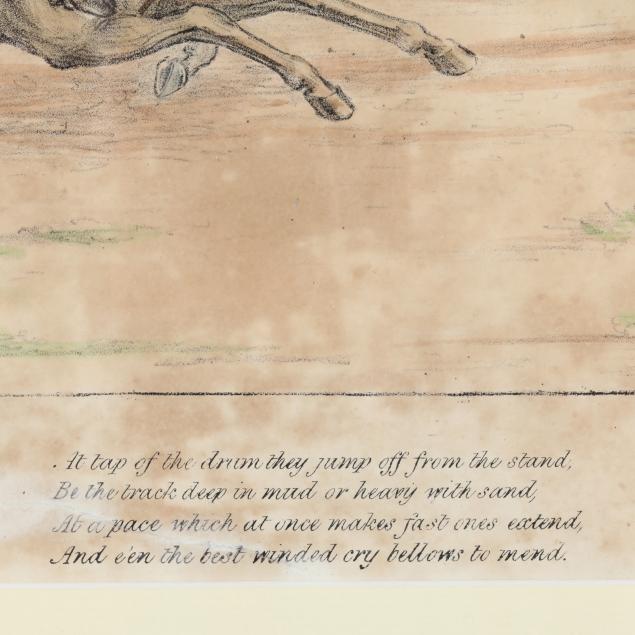 At tap of the drum they jump off from the stand,
Be the track deep in mud or heavy with sand,
At a pace which at once makes fast ones extend,
And e'en the best winded cry bellows to mend.